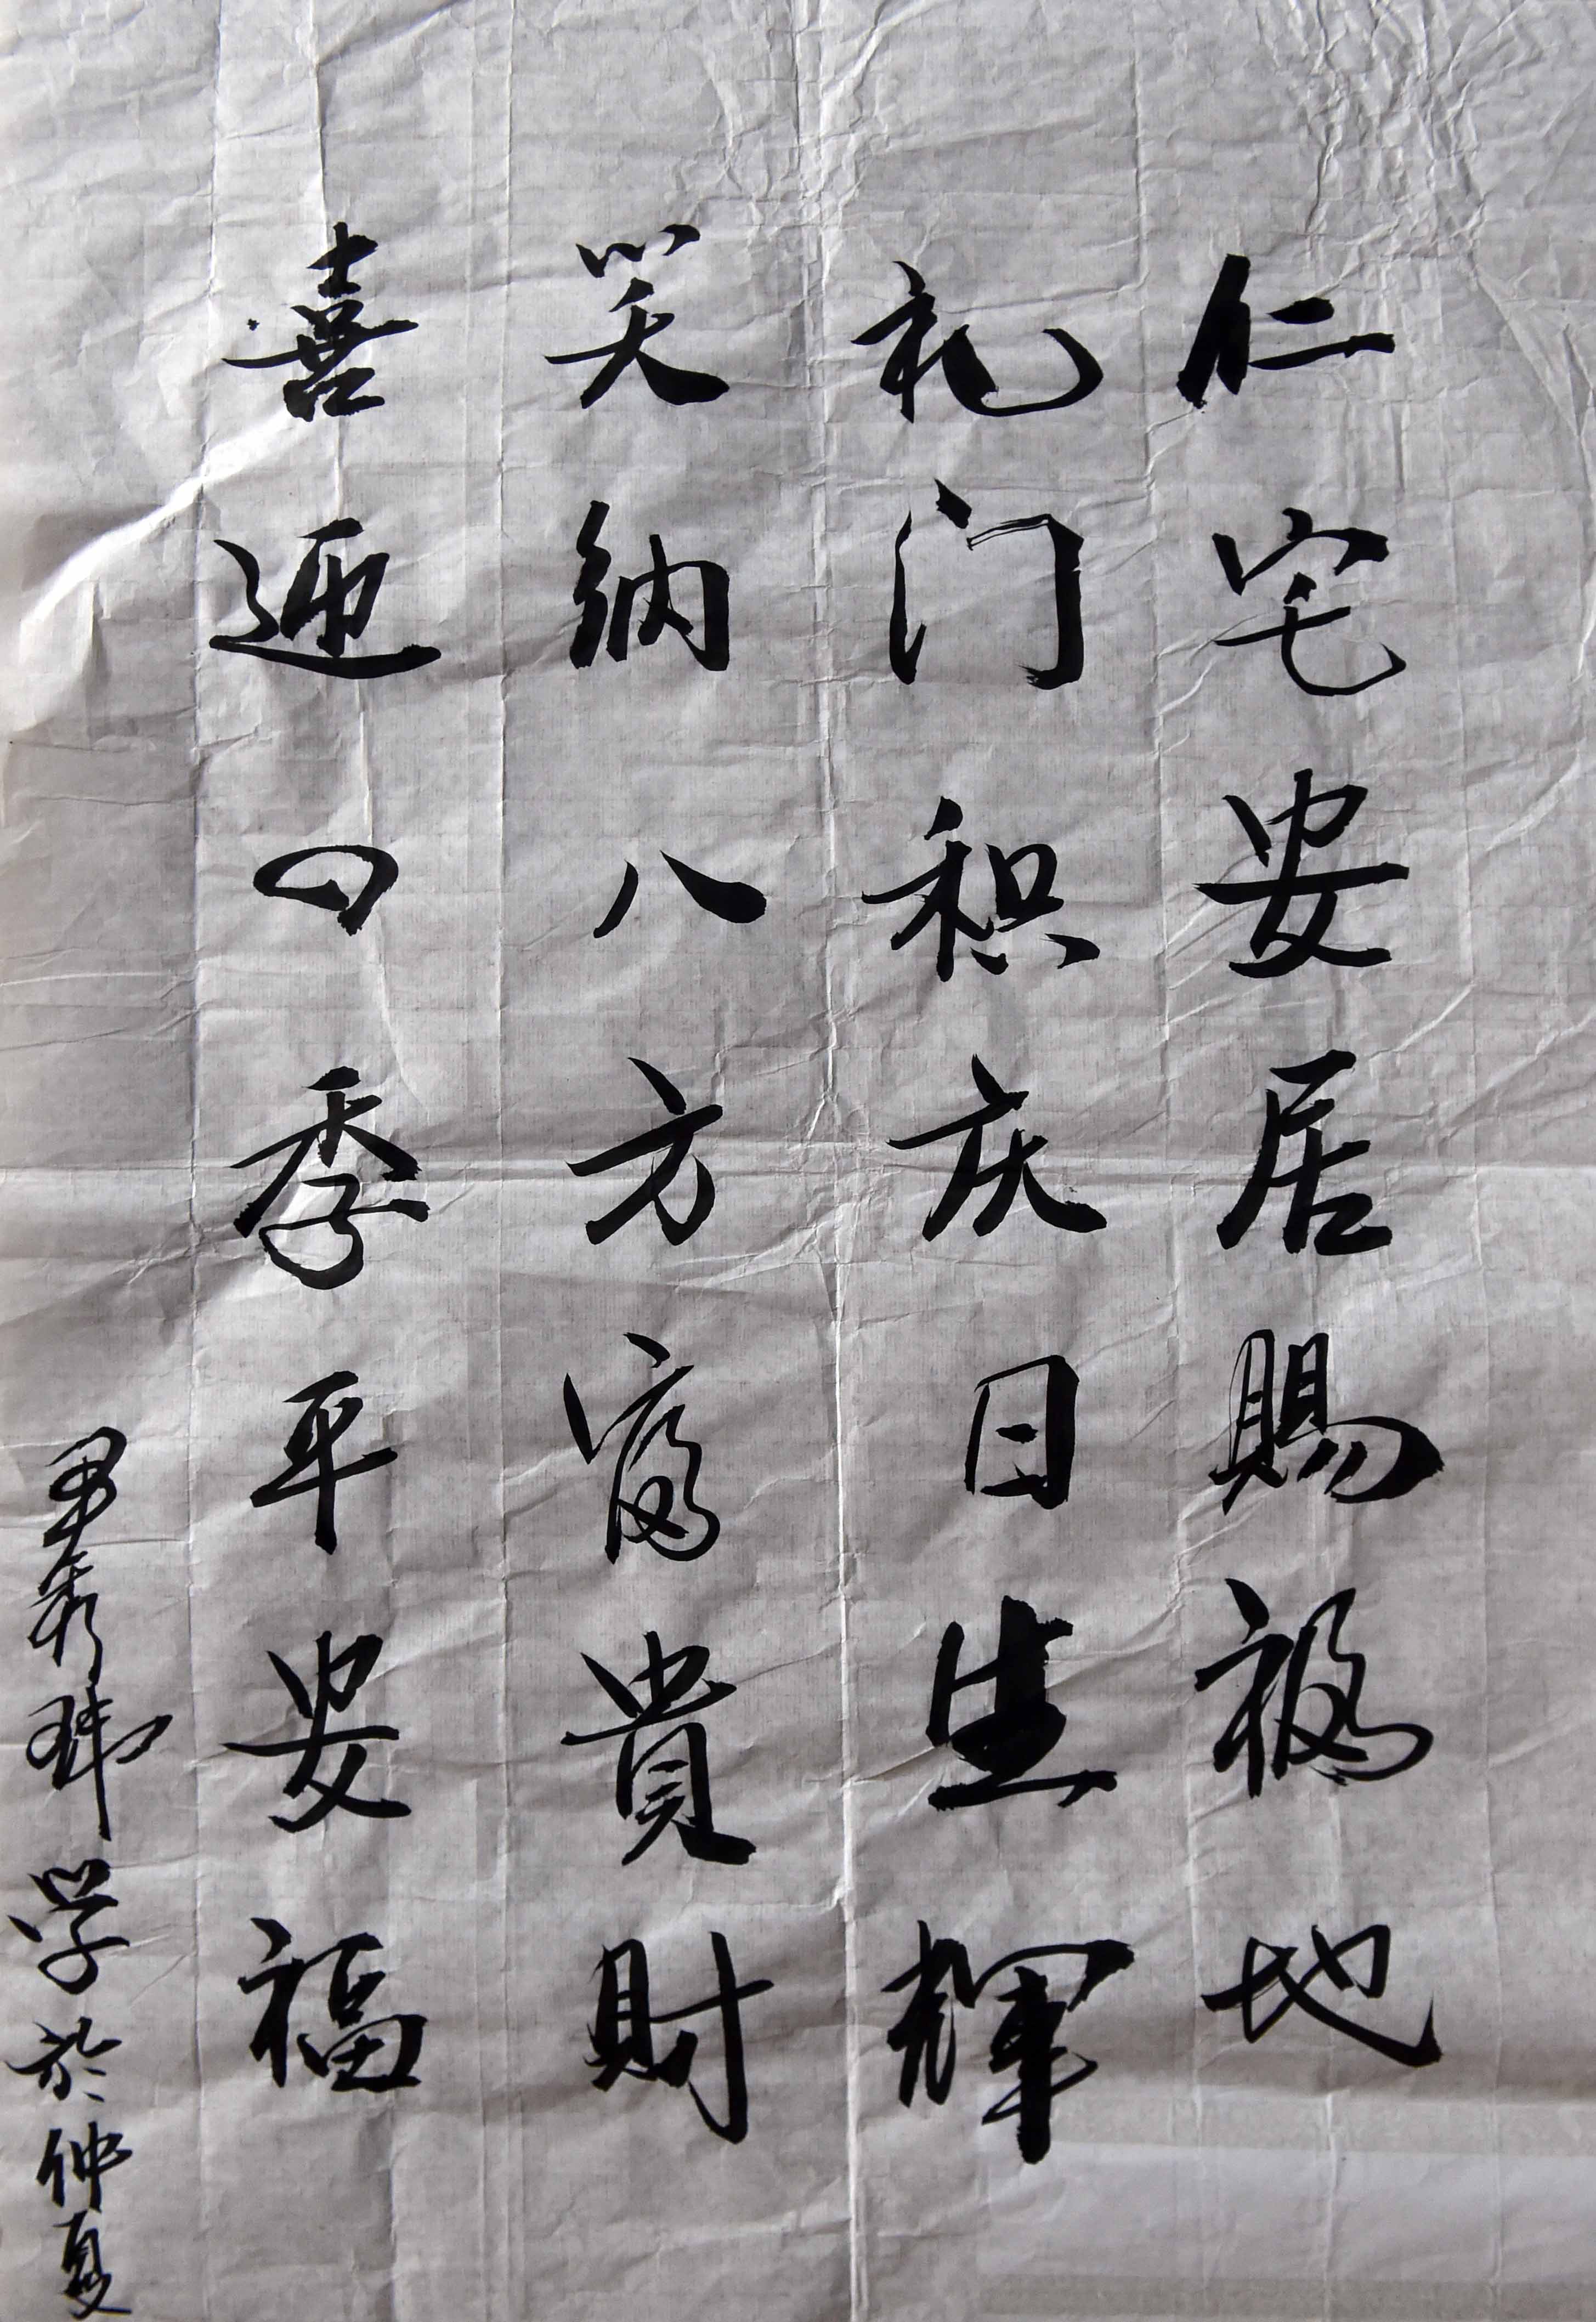 仁宅安居賜福地
礼门积庆日生輝
笑納八方富貴財
喜迎四季平安福
秀瑋学於仲夏